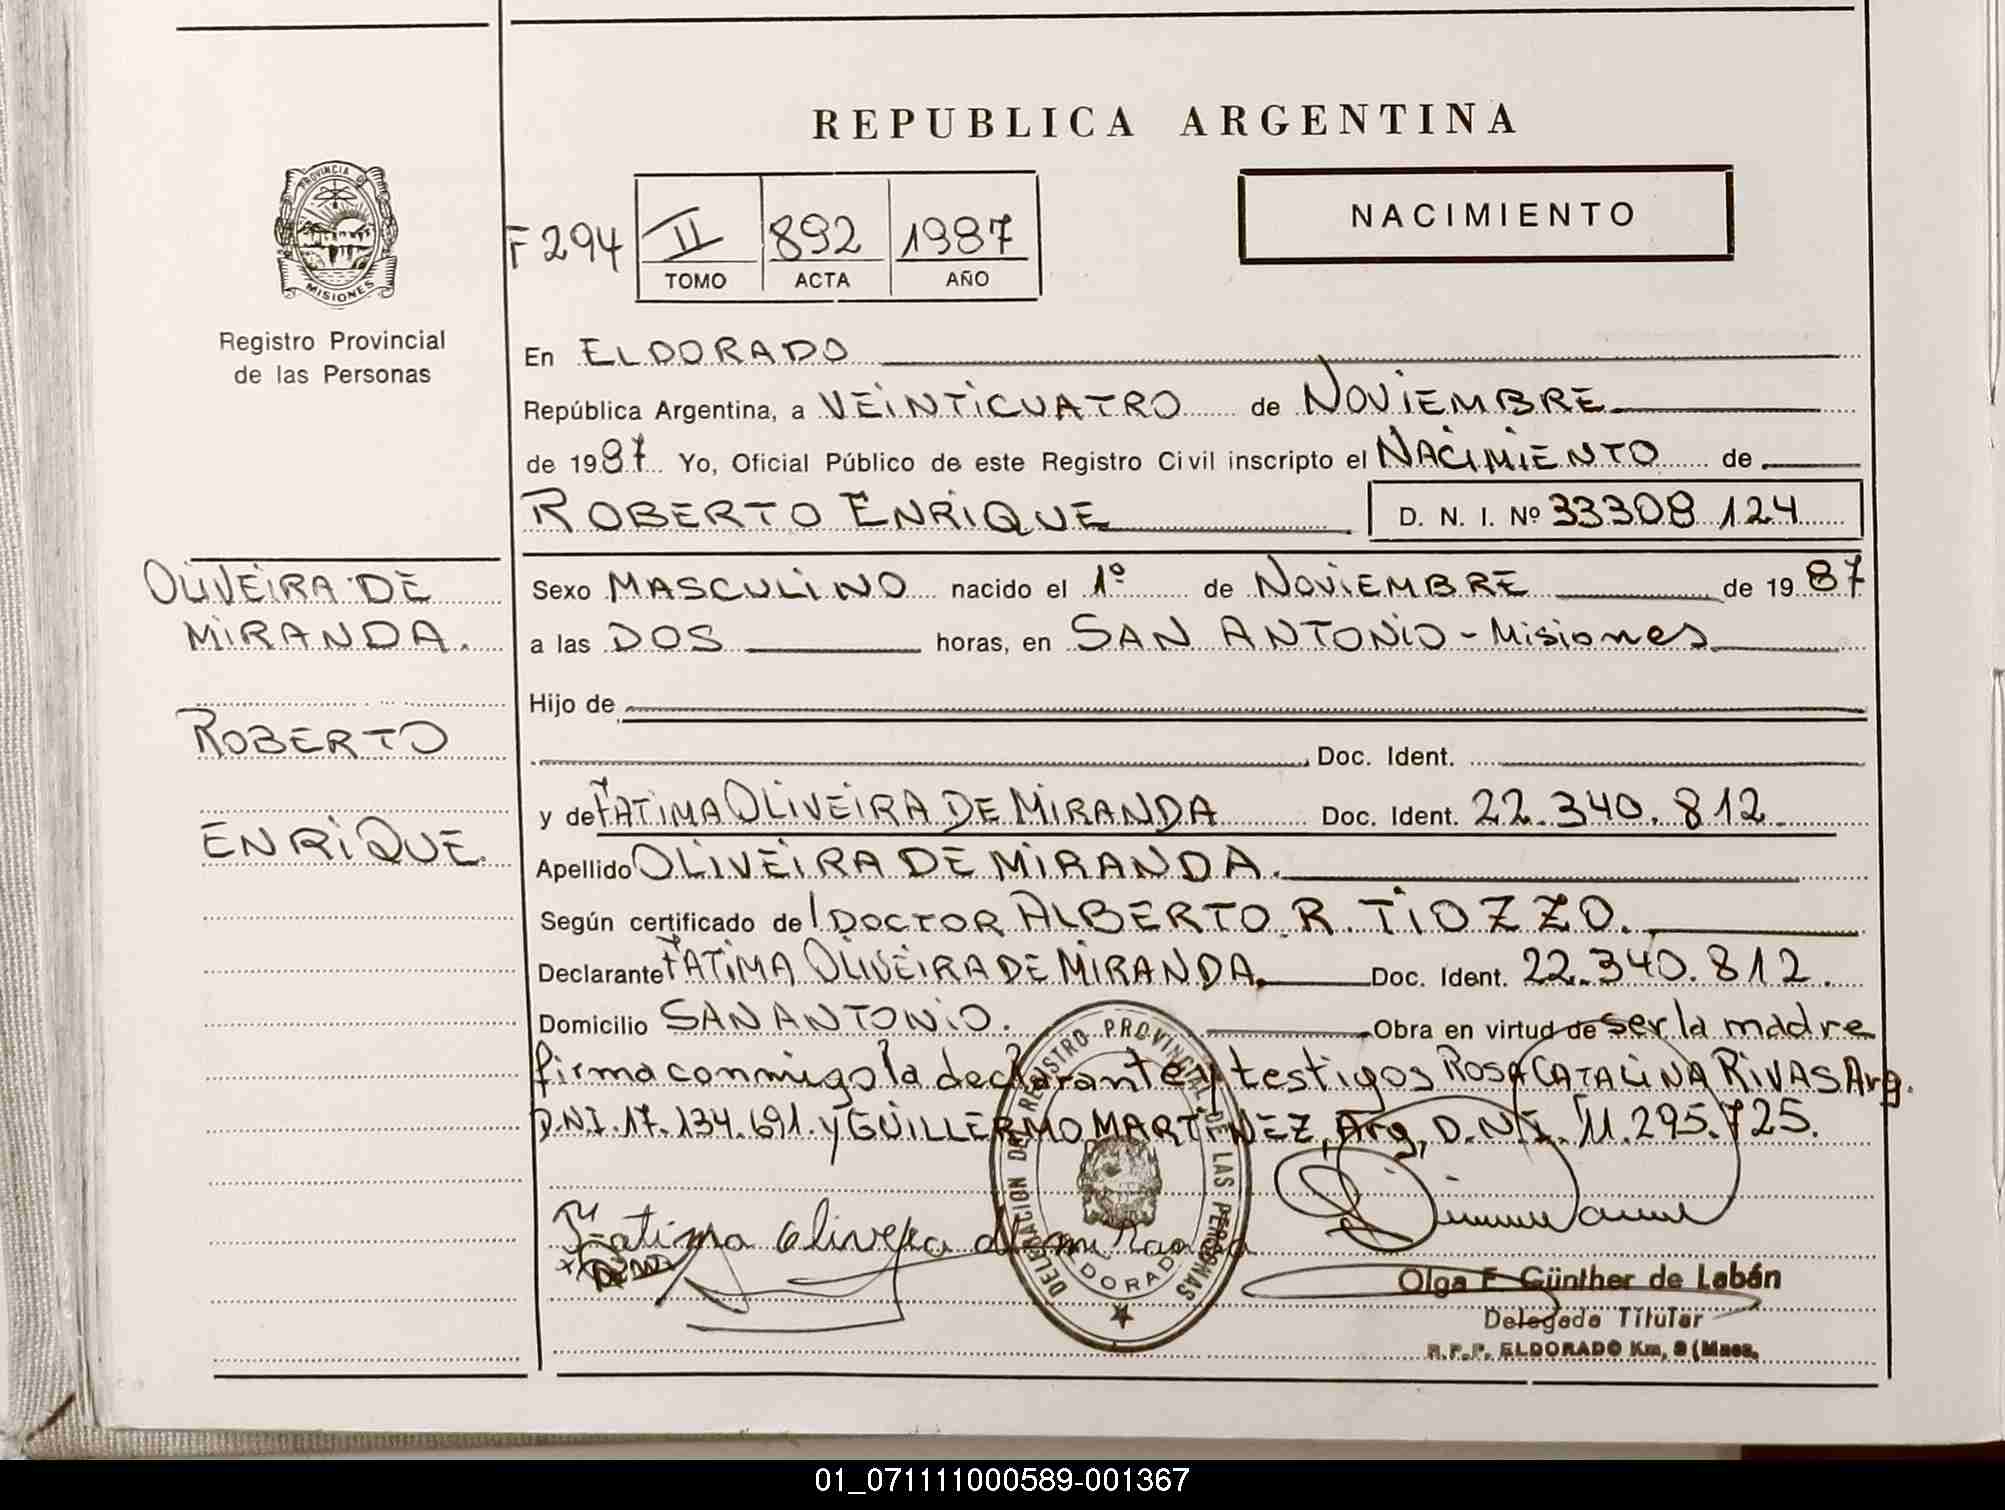 REPUBLICA ARGENTINA
PROVINCIA DE
MISIONES
Registro Provincial
de las Personas
F294
II 892 1987
TOMO ACTA AÑO
NACIMIENTO
En ELDORADO
República Argentina, a VEINTICUATRO de NOVIEMBRE
de 1987 Yo, Oficial Público de este Registro Civil inscripto el NACIMIENTO de
ROBERTO ENRIQUE D. N. I. Nº 33308 124
OLIVEIRA DE
MIRANDA.
ROBERTO
ENRIQUE.
Sexo MASCULINO nacido el 1º de NOVIEMBRE de 1987
a las DOS horas, en SAN ANTONIO - Misiones
Hijo de
Doc. Ident.
y de FATIMA OLIVEIRA DE MIRANDA Doc. Ident. 22.340.812
Apellido OLIVEIRA DE MIRANDA.
Según certificado del DOCTOR ALBERTO R. TIOZZO.
Declarante FATIMA OLIVEIRA DE MIRANDA Doc. Ident. 22.340.812.
Domicilio SAN ANTONIO. Obra en virtud de ser la madre
firma conmigo la declarante y testigos ROSA CATALINA RIVAS Arg.
D.N.I. 17.134.691. y GUILLERMO MARTINEZ, Arg, D.N.I. 11.295.725.
DELEGACION DEL REGISTRO PROVINCIAL DE LAS PERSONAS
ELDORADO
Fatima oliveira de miranda
Olga E. Günther de Labán
Delegada Titular
R.P.P. ELDORADO Km. 9 (Mnes.
01_071111000589-001367